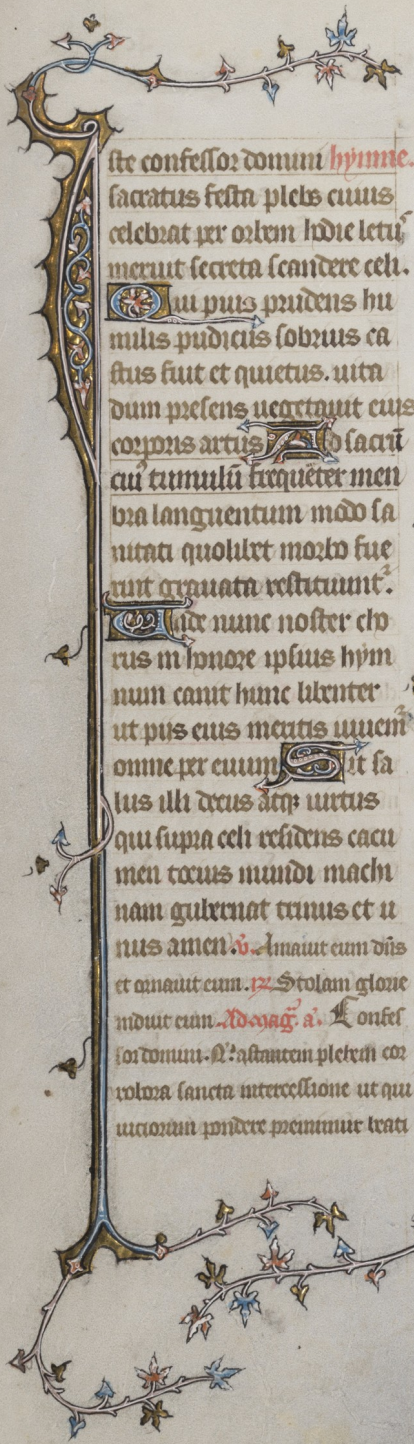 Iste confessor domini hymne.
sacratus festa plebs cuius
celebrat per orbem hodie letus
meruit secreta scandere celi.
Qui pius prudens hu
milis pudicus sobrius ca
stus fuit et quietus. uita
dum presens uegetauit eius
corporis artus Ad sacrū
cui tumulū frequēter mem
bra languentum modo sa
nitati quolibet morbo fue
rint grauata restituunt᷑.
Unde nunc noster cho
rus in honore ipsius hym
num canit hunc libenter
ut piis eius meritis iuuem᷑
omne per euum Sit sa
lus illi decus atqꝫ uirtus
qui supra celi residens cacu
men tocius mundi machi
nam gubernat trinus et u
nus amen. v̄. Amauit eum dn̄s
et ornauit eum. ꝶ Stolam glorie
induit eum. Ad mag̃. a̓. Confes
sor domini. N. astantem plebem cor
robora sancta intercessione ut qui
uiciorum pondere premimur beati